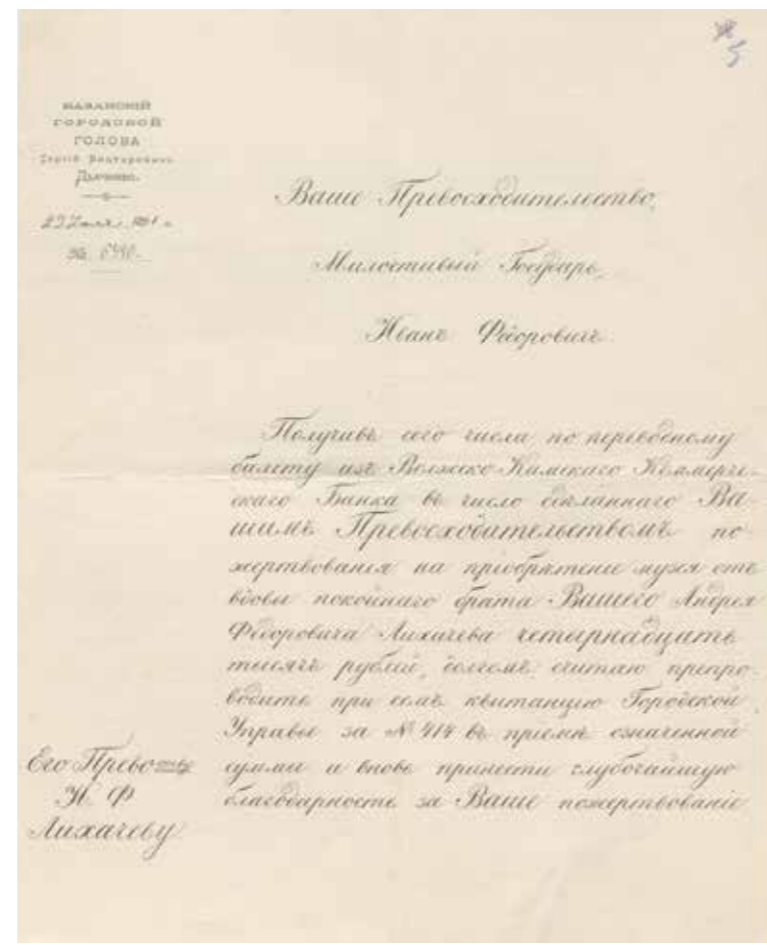 5
КАЗАНСКІЙ
ГОРОДСКОЙ
ГОЛОВА
Сергѣй Викторовичъ
Дьяченко.
№
Ваше Превосходительство,
Милостивый Государь,
Иванъ Ѳедоровичъ.
Получивъ сего числа по переводному
билету изъ Волжско-Камскаго Коммерче-
скаго Банка въ число сдѣланнаго Ва-
шимъ Превосходительствомъ по-
жертвованія на пріобрѣтеніе музея отъ
вдовы покойнаго брата Вашего Андрея
Ѳедоровича Лихачева четырнадцать
тысячъ рублей, долгомъ считаю препро-
водить при семъ квитанцію Городской
Управы за № 414 въ пріемѣ означенной
суммы и вновь принести глубочайшую
благодарность за Ваше пожертвованіе
Его Превос-ству
И Ѳ
Лихачеву